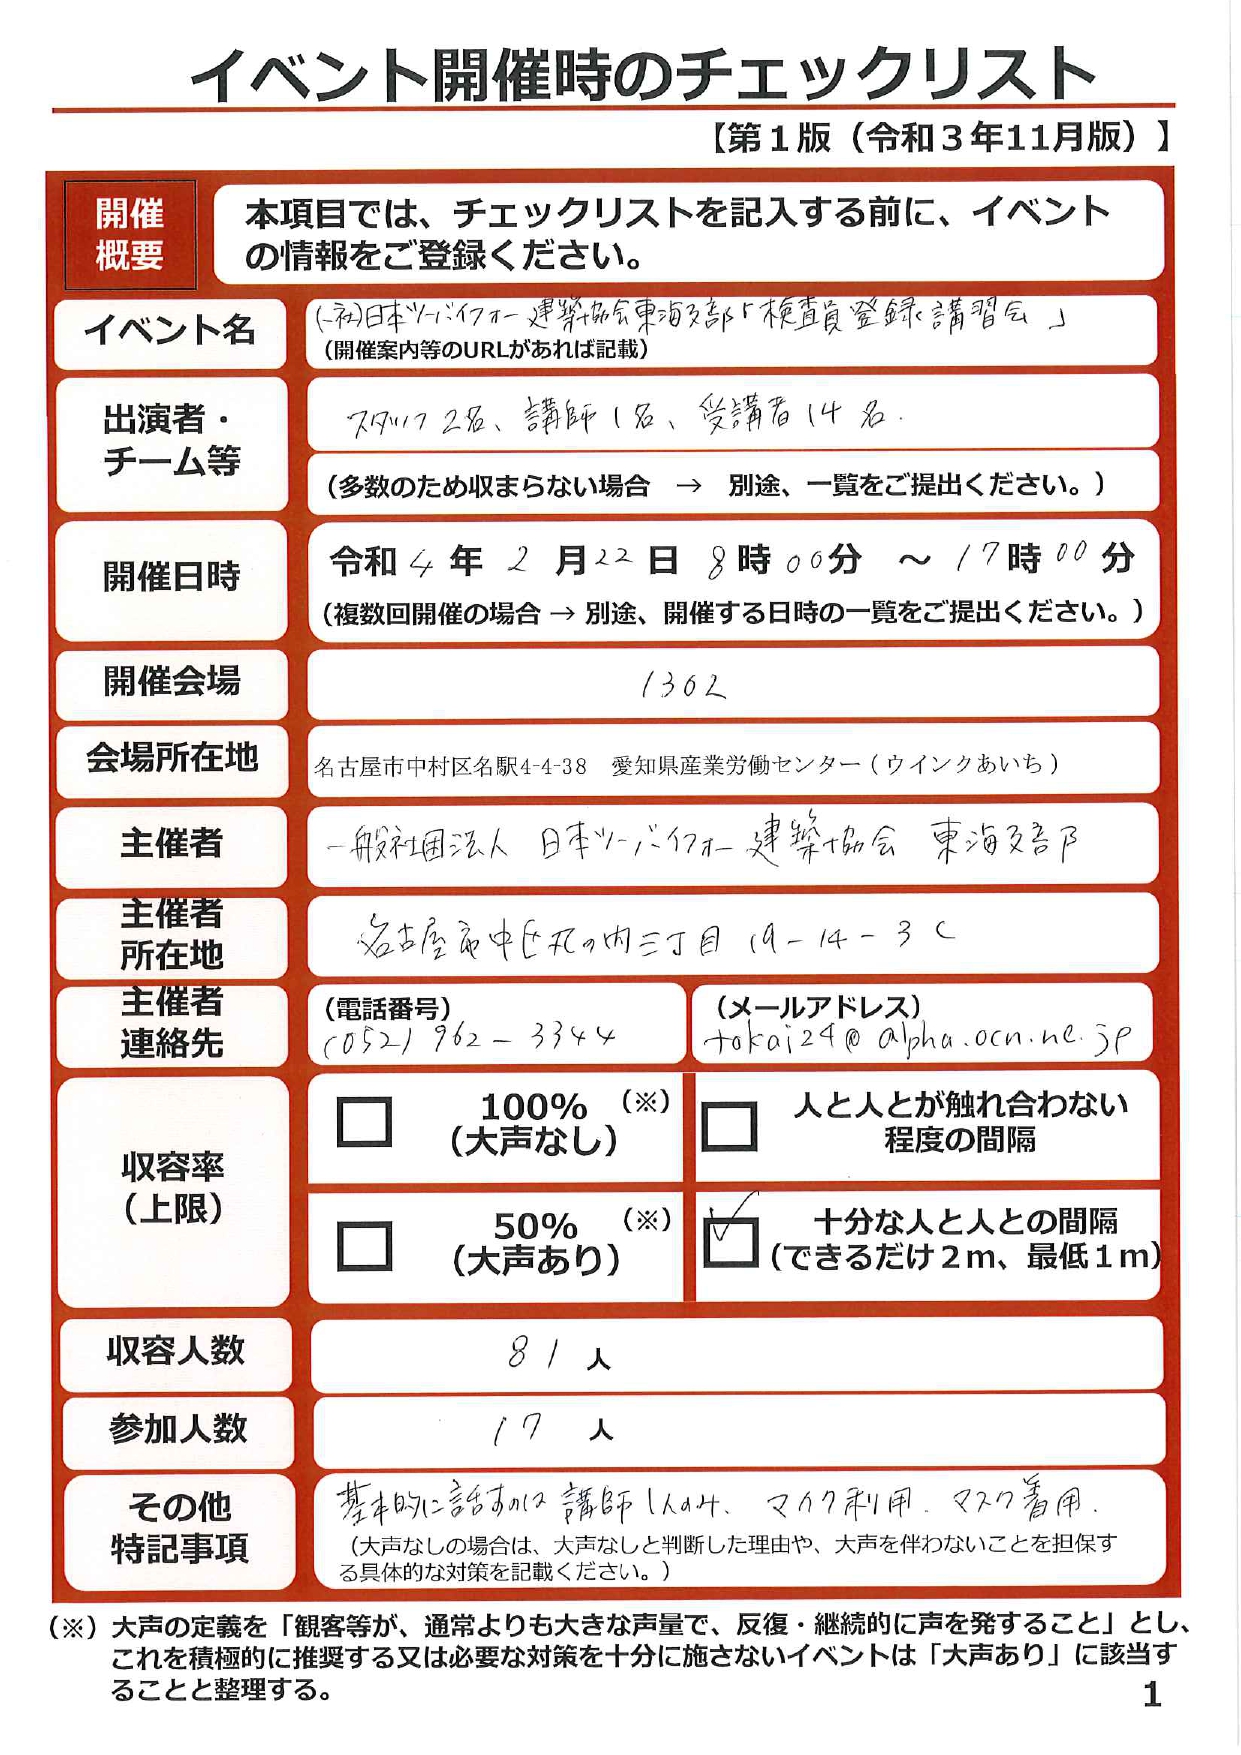 イベント開催時のチェックリスト
【第1版（令和3年11月版）】
開催
概要
本項目では、チェックリストを記入する前に、イベント
の情報をご登録ください。
イベント名
(一社)日本ツーバイフォー建築協会東海支部「検査員登録講習会」
（開催案内等のURLがあれば記載）
出演者・
チーム等
スタッフ2名、講師1名、受講者14名.
（多数のため収まらない場合　→　別途、一覧をご提出ください。）
開催日時
令和 4 年 2 月 22 日 8 時 00 分 ～ 17 時 00 分
（複数回開催の場合 → 別途、開催する日時の一覧をご提出ください。）
開催会場
1302
会場所在地
名古屋市中村区名駅4-4-38　愛知県産業労働センター（ウインクあいち）
主催者
一般社団法人 日本ツーバイフォー建築協会 東海支部
主催者
所在地
名古屋市中区丸の内三丁目19-14-3C
主催者
連絡先
（電話番号）
(052) 962-3344
（メールアドレス）
tokai24@alpha.ocn.ne.jp
収容率
（上限）
100% （※）
（大声なし）
人と人とが触れ合わない
程度の間隔
50% （※）
（大声あり）
十分な人と人との間隔
（できるだけ2m、最低1m）
収容人数
81 人
参加人数
17 人
その他
特記事項
基本的に話すのは講師1人のみ、マイク利用. マスク着用.
（大声なしの場合は、大声なしと判断した理由や、大声を伴わないことを担保す
る具体的な対策を記載ください。）
（※）大声の定義を「観客等が、通常よりも大きな声量で、反復・継続的に声を発すること」とし、
これを積極的に推奨する又は必要な対策を十分に施さないイベントは「大声あり」に該当す
ることと整理する。
1